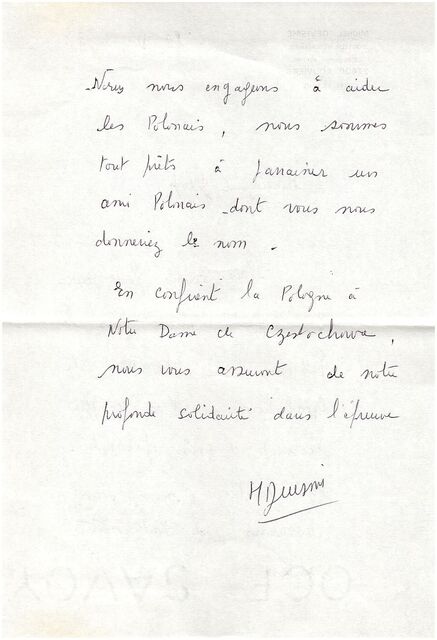 Nous nous engageons à aider
les Polonais, nous sommes
tout prêts à parrainer un
ami Polonais dont vous nous
donneriez le nom.
En confiant la Pologne à
Notre Dame de Czestochowa,
nous vous assurons de notre
profonde solidarité dans l'épreuve